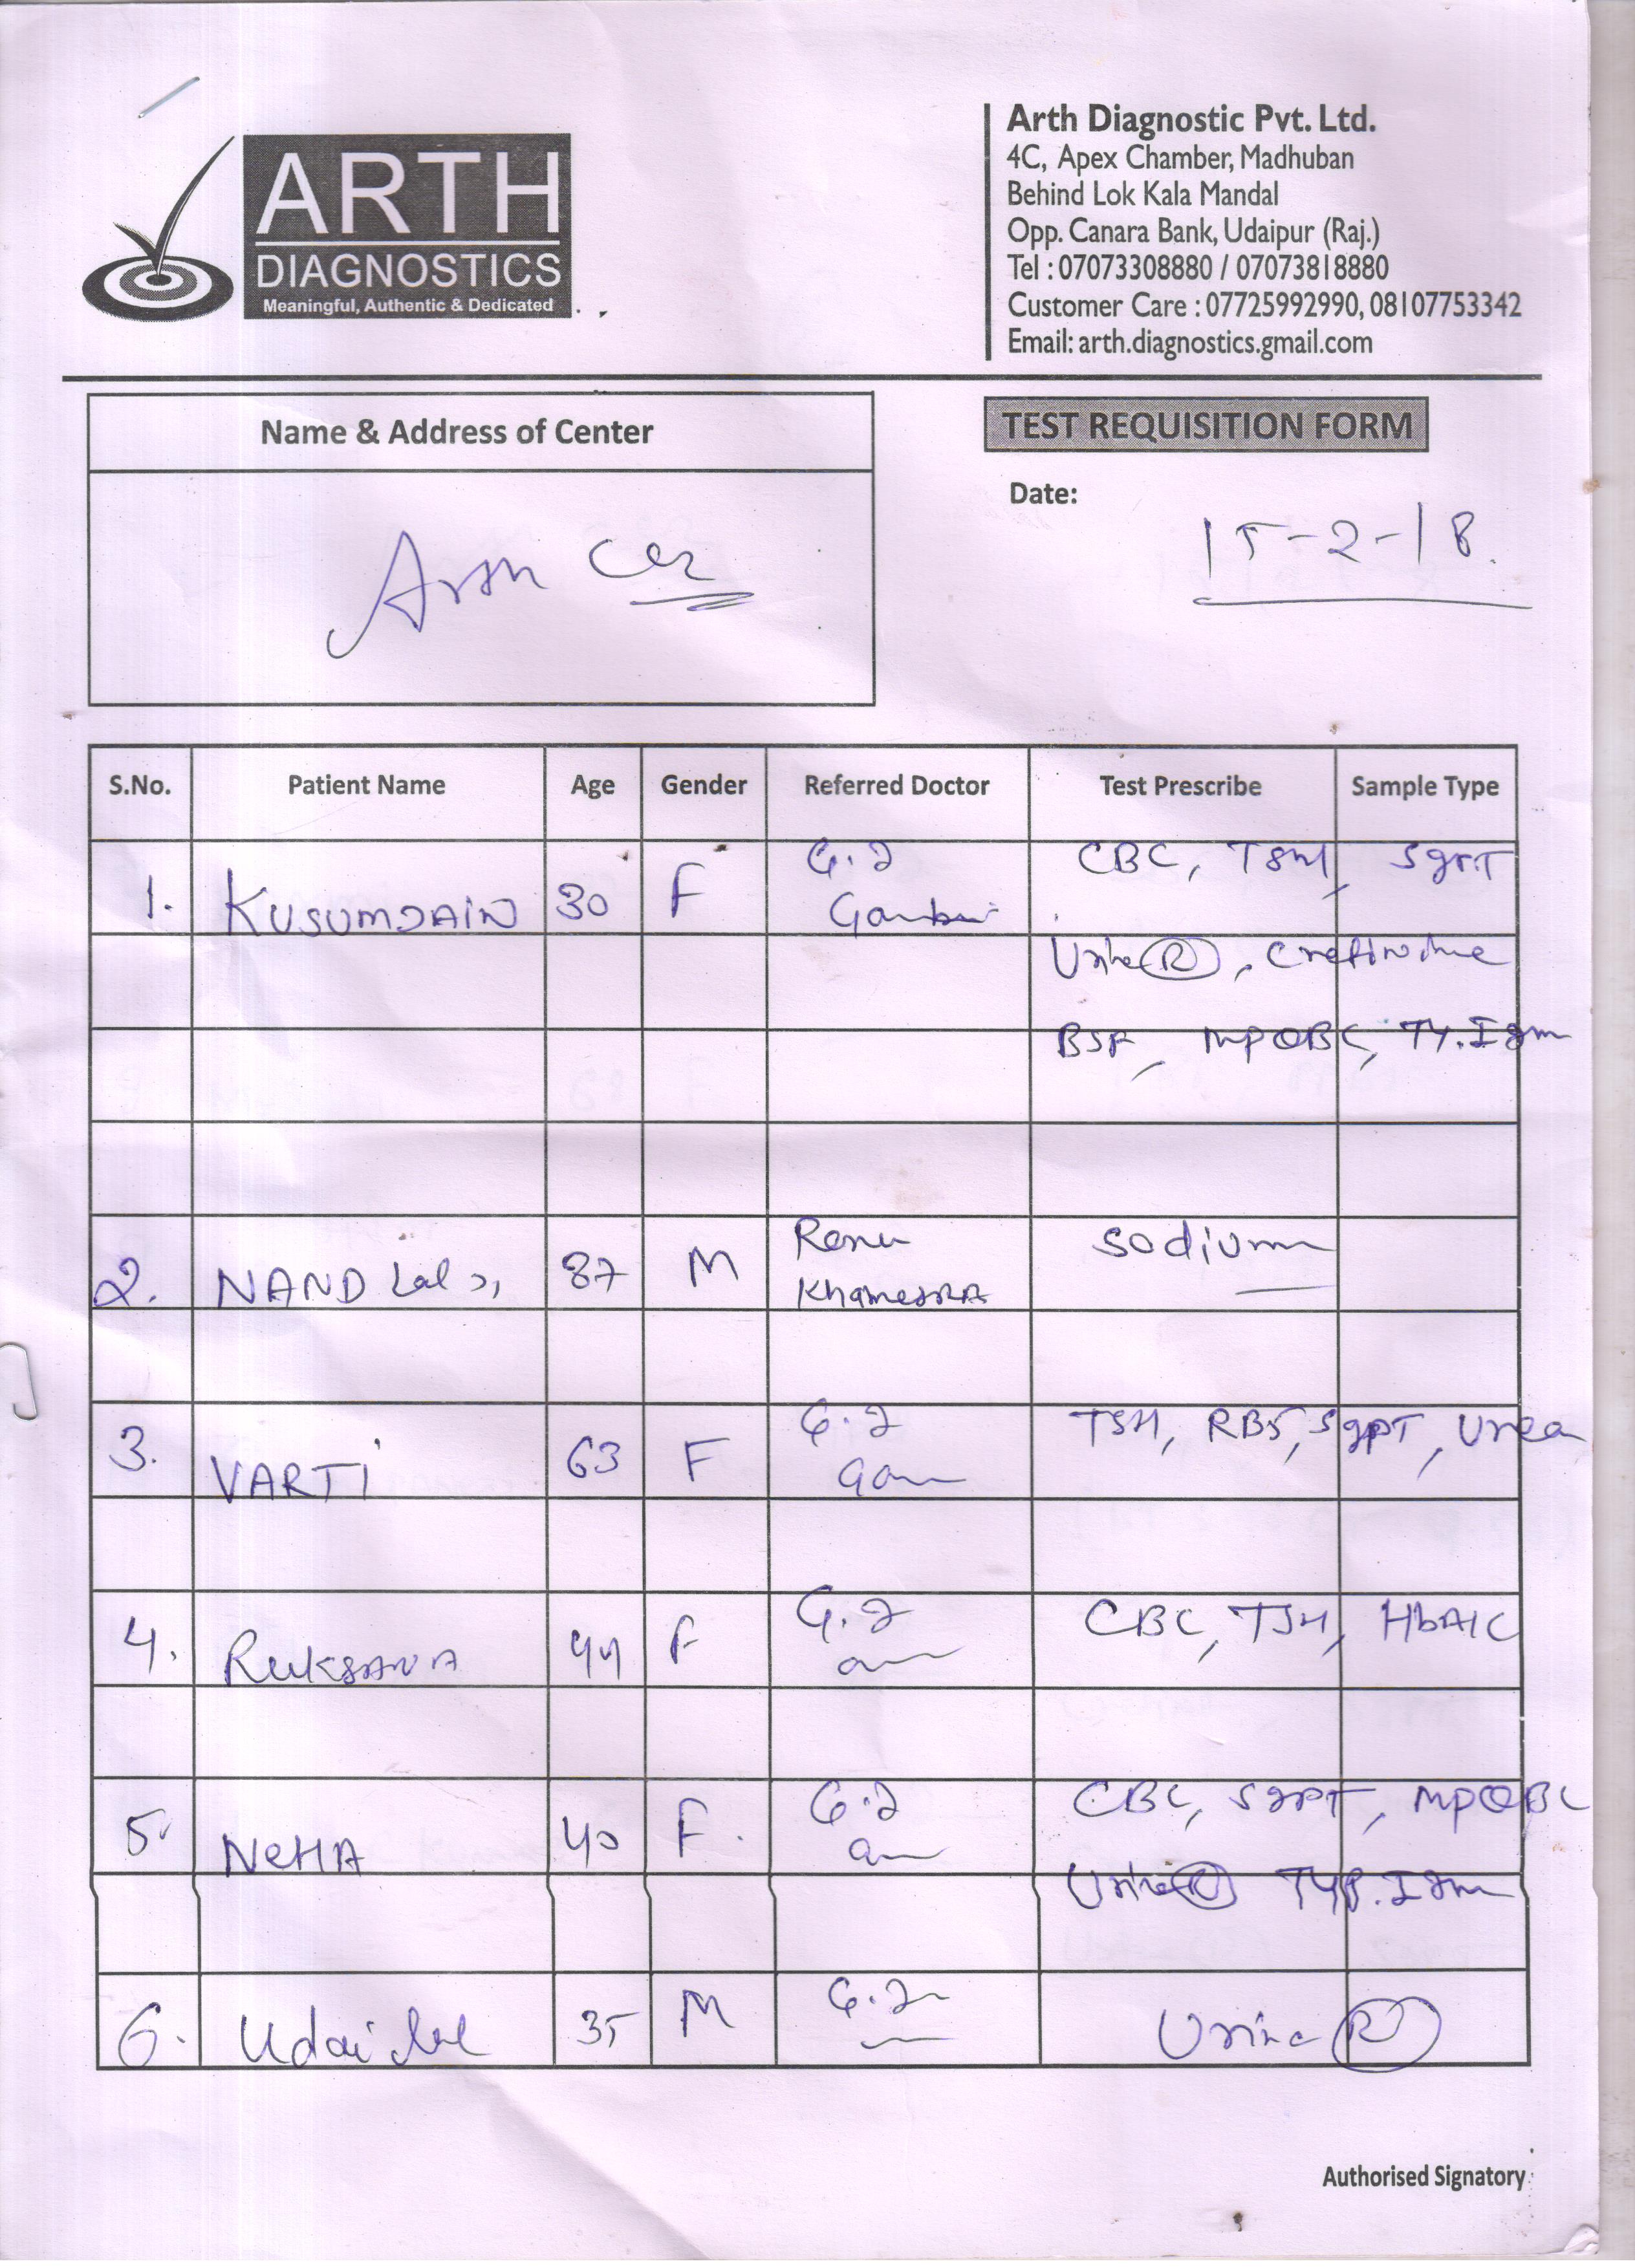 ARTH
DIAGNOSTICS
Meaningful, Authentic & Dedicated
Arth Diagnostic Pvt. Ltd.
4C, Apex Chamber, Madhuban
Behind Lok Kala Mandal
Opp. Canara Bank, Udaipur (Raj.)
Tel : 07073308880 / 07073818880
Customer Care : 07725992990, 08107753342
Email: arth.diagnostics.gmail.com
Name & Address of Center
TEST REQUISITION FORM
Date:
15-2-18.
Arth
S.No. Patient Name Age Gender Referred Doctor Test Prescribe Sample Type
1. KUSUMJAIN 30 F G.J CBC, TSH, SGPT
Urine (R), Cretinine
BSF, MPQBC, TY.Igm
2. NAND Lal 87 M Renu Sodium
KhamesRA
3. VARTI 63 F G.J TSH, RBS, SgPT, Urea
4. RUKSANA 44 F G.J CBC, TSH, HbA1C
5. NeHA 40 F. G.J CBC, SGPT, MPQBC
Urine (R) TYP. Igm
6. Udai lal 35 M G.J Urine (R)
Authorised Signatory